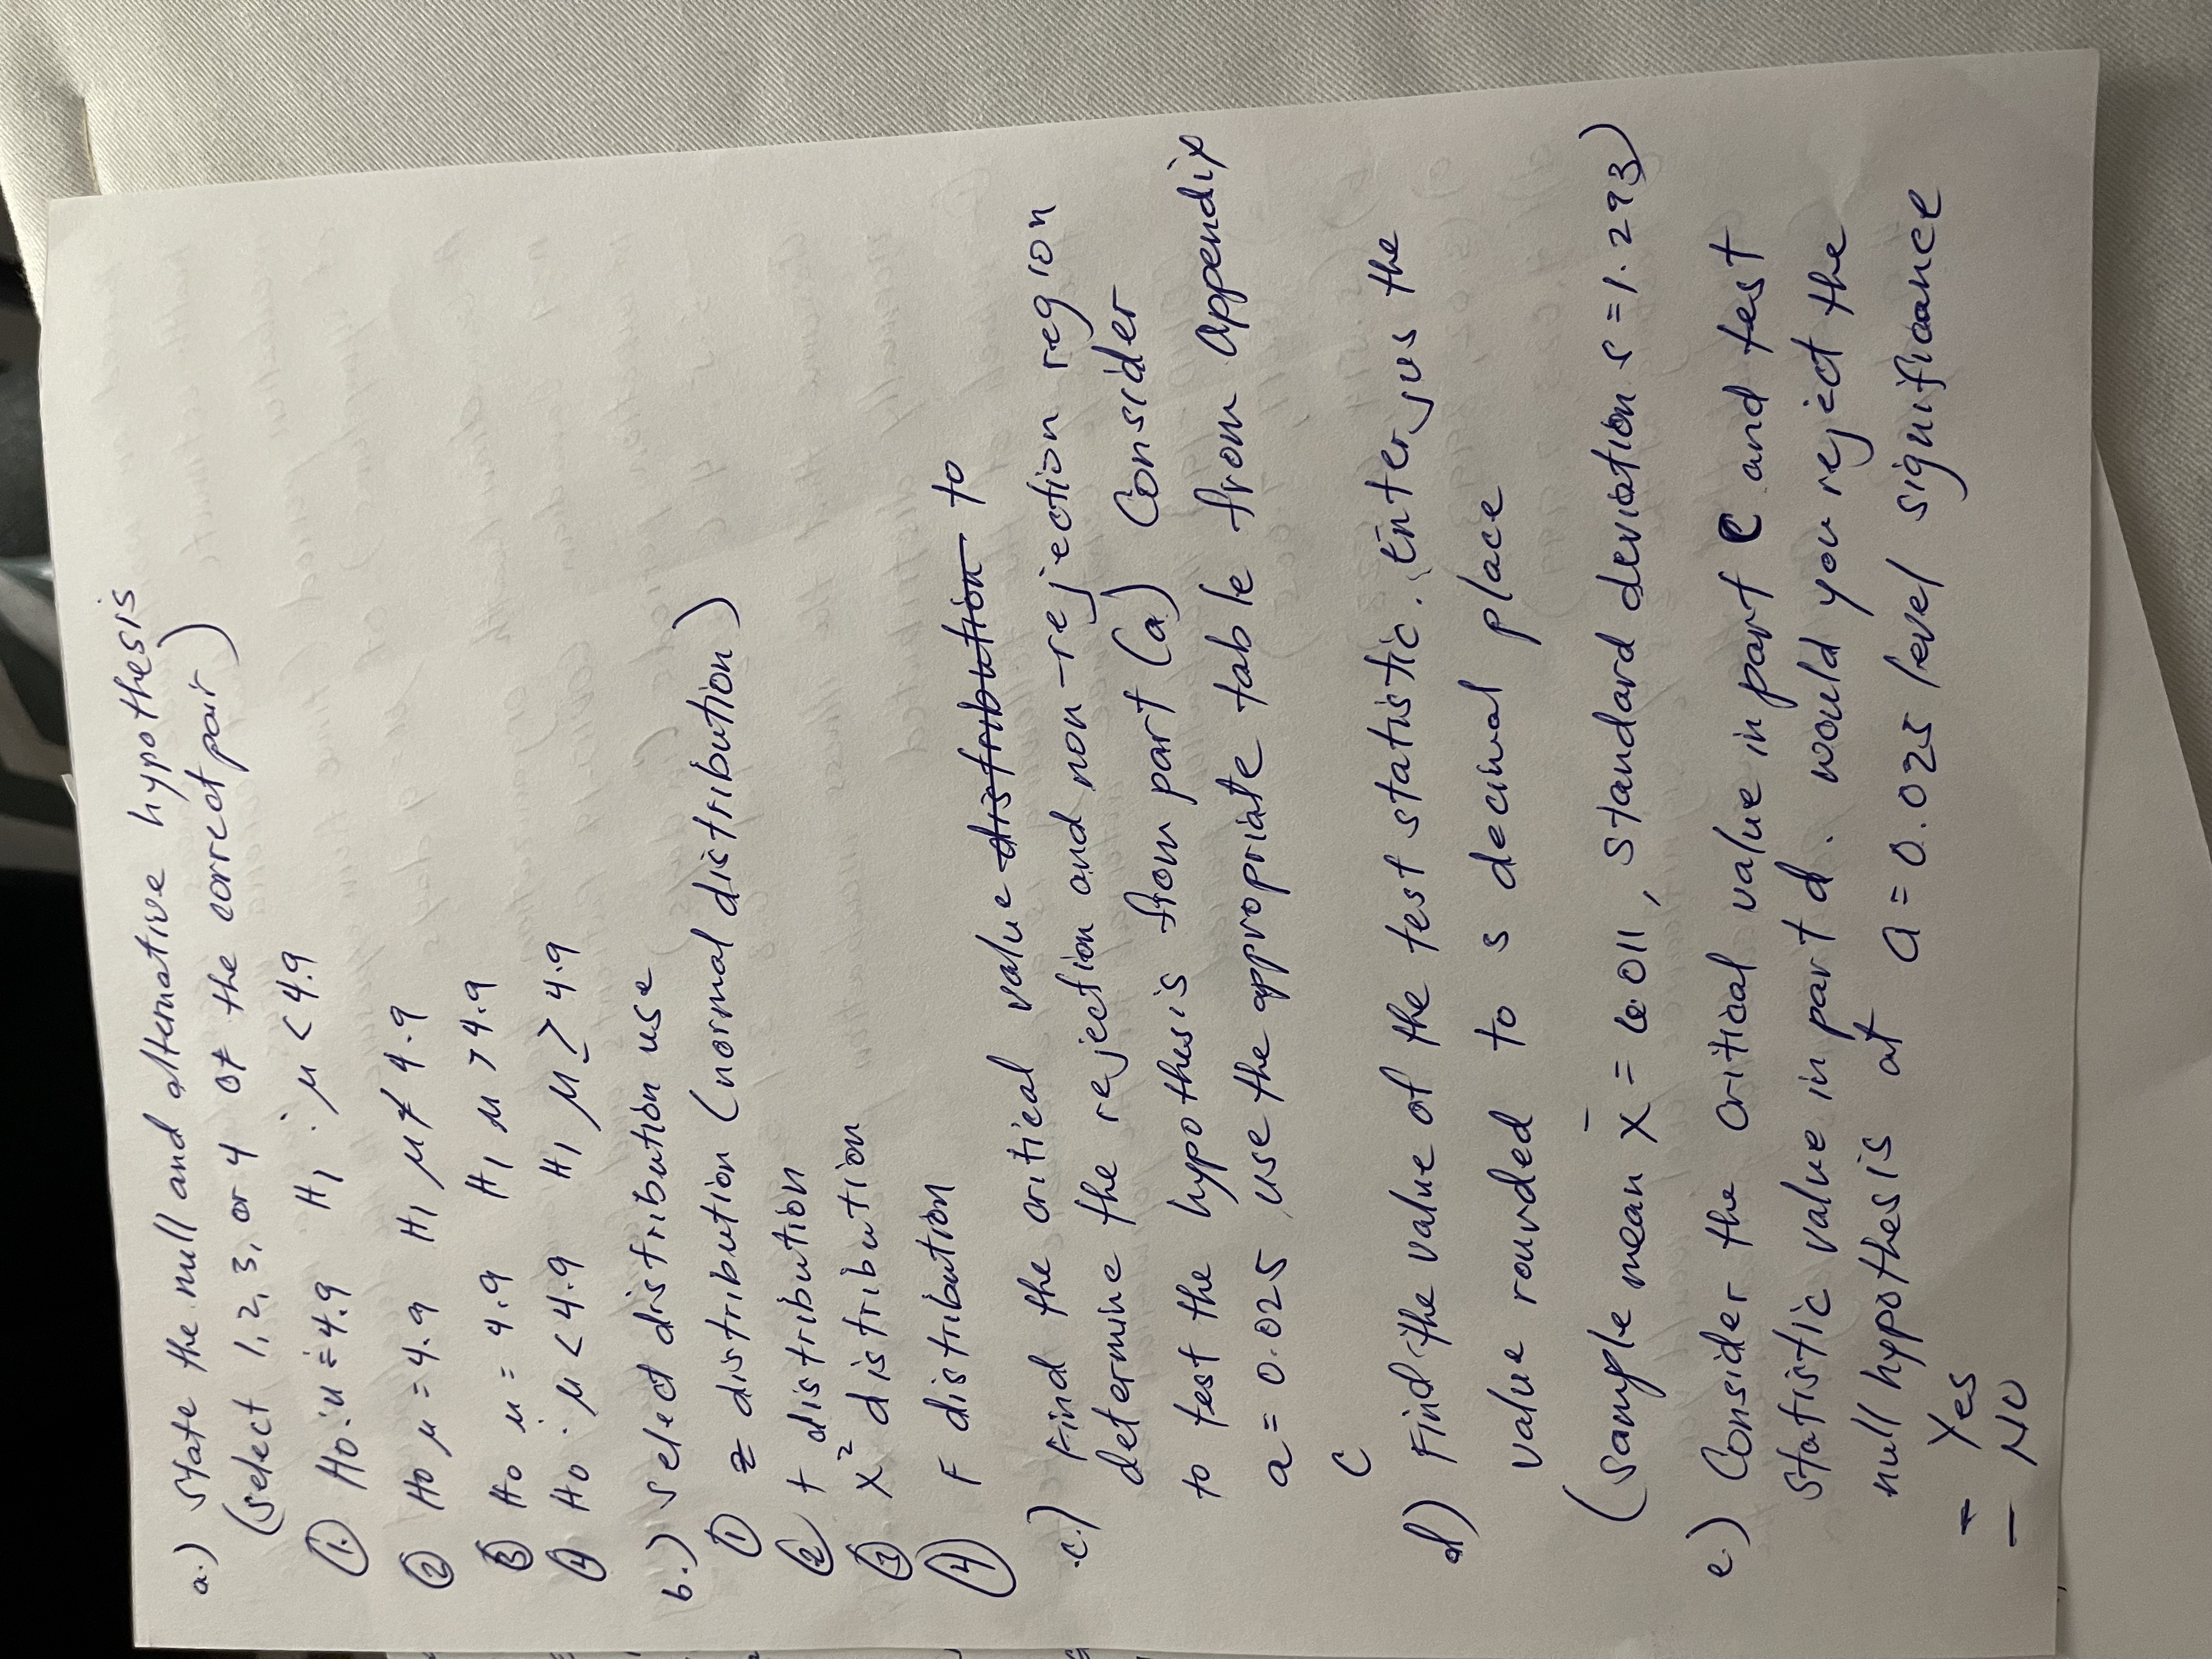 a.) state the null and alternative hypothesis
(select 1, 2, 3, or 4 of the correct pair)
① H0 : u = 4.9 H1 : μ < 4.9
② H0 μ = 4.9 H1 μ ≠ 4.9
③ H0 μ = 4.9 H1 μ > 4.9
④ H0 : μ < 4.9 H1 μ ≥ 4.9
b.) select distribution use
① z distribution (normal distribution)
② t distribution
③ X² distribution
④ F distribution
c.) Find the critical value distribution to
determine the rejection and non-rejection region
to test the hypothesis from part (a) Consider
a = 0.025, use the appropriate table from appendix
C
d) Find the value of the test statistic. Enter jus the
value rounded to 5 decimal place
(sample mean x̄ = 6.011, standard deviation s = 1.293)
e.) Consider the critical value in part C and test
statistic value in part d. would you reject the
null hypothesis at a = 0.025 level significance
- Yes
- No